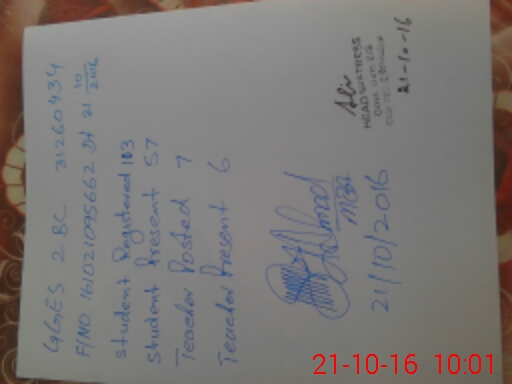 GGES 2 BC 31260434
FINO 161021095662 Dt 21 10/2016
Student Registered 103
Student Present 57
Teacher Posted 7
Teacher Present 6
21/10/2016
HEADMISTRESS
21-10-16
21-10-16 10:01